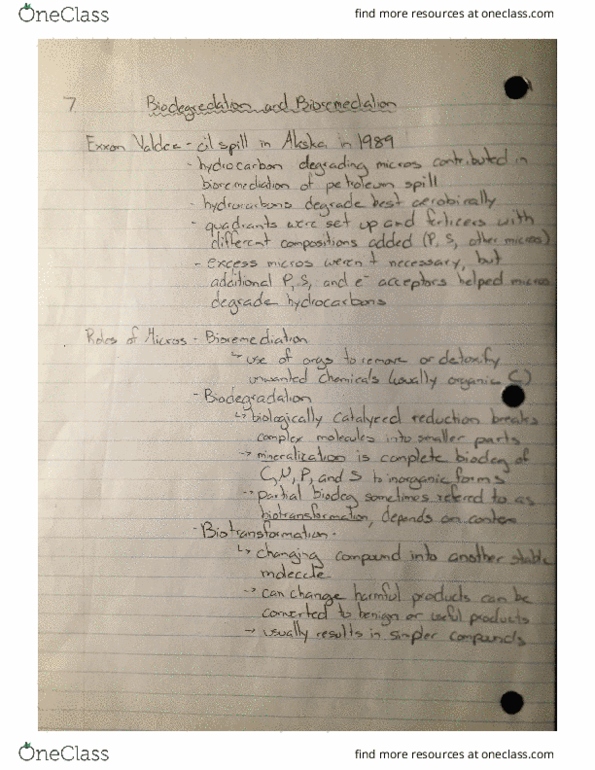 OneClass
find more resources at oneclass.com
7
Biodegredation and Bioremediation
Exxon Valdez - oil spill in Alaska in 1989
- hydrocarbon degrading micros contributed in
bioremediation of petroleum spill
- hydrocarbons degrade best aerobically
- quadrants were set up and with
different compositions added (P, S, other micros)
- excess micros weren't necessary, but
additional P, S, and e⁻ acceptors helped micros
degrade hydrocarbons
Roles of Micros - Bioremediation
↳ use of orgs to remove or detoxify
unwanted chemicals (usually organic C)
- Biodegradation
↳ biologically catalyzed reduction breaks
complex molecules into smaller parts
→ mineralization is complete biodeg of
C, N, P, and S to inorganic forms
→ partial biodeg sometimes refered to as
biotransformation, depends on
- Biotransformation -
↳ changing compound into another stable
molecule
→ can change harmful products can be
converted to benign or useful products
→ usually results in simpler compounds
OneClass
find more resources at oneclass.com